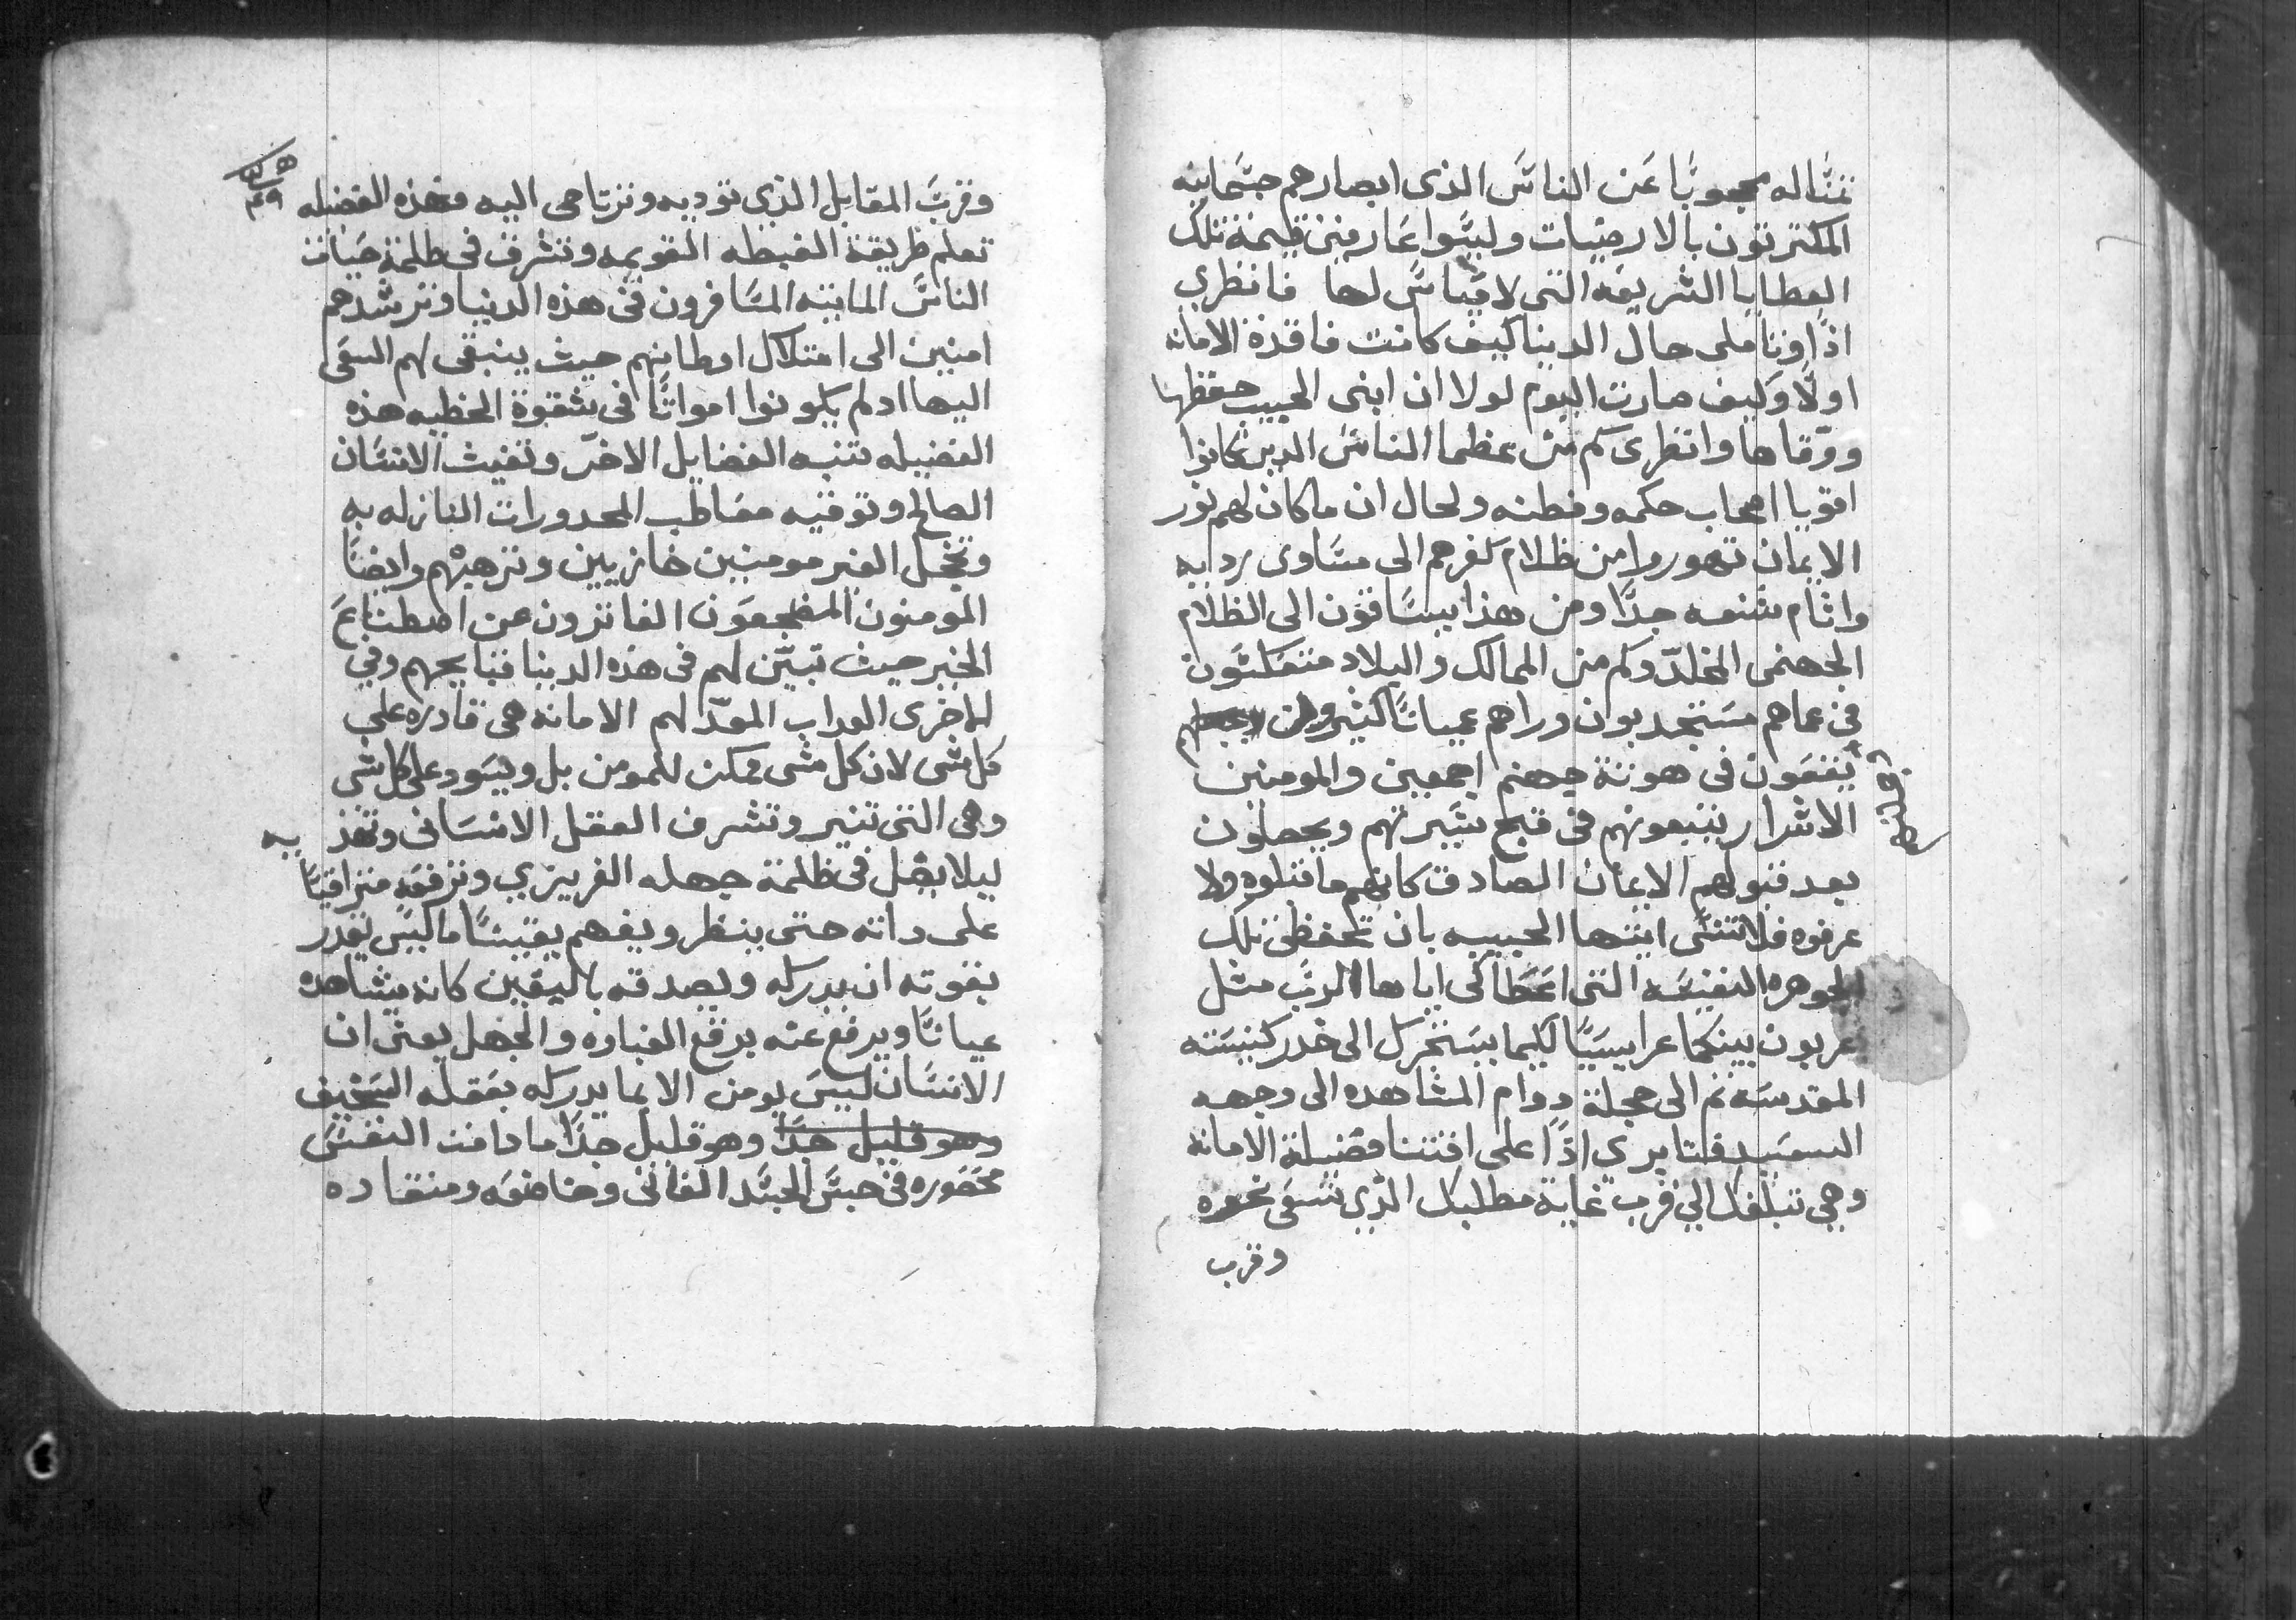 تمثاله محجوبًا عن الناس الذى ابصارهم جسمانيه
المكترتون بالارضيات وليسوا عارفين قيمة تلك
العطايا الشريفه التى لا قياس لها فانظري
اذًا وتاملى حال الدنيا كيف كانت فاقدة الامانه
اولًا وكيف صارت اليوم لولا ان ابنى الحبيب حفظها
ووقاها وانظرى كم من عظما الناس الدين كانوا
اقويا اصحاب حكمه وفطنه ولحال ان ماكان لهم نور
الايمان تهوروا من ظلام كفرهم الى مساوى رديه
واثام شنعه جدًا ومن هذا يساقون الى الظلام
الجهنمى المخلد وكم من الممالك والبلاد منعكسون
فى عماهم مستجدبون وراهم عميانًا كثيرون
يقعون فى هوتة جهنم اجمعين والمومنين
الاشرار يتبعونهم فى قبح سيرتهم ويحصلون
بعد قبولهم الايمان الصادق كانهم ما قبلوه ولا
عرفوه فلا تنسى ايتها الحبيبه بان تحفظى تلك
الجوهره النفيسه التى اعطاكى اياها الرب مثل
عربون بينكما عرايسيًا لكيما يستجرك الى خدر كنيسته
المقدسه ثم الى حجلة دوام المشاهده الى وجهه
السعيد فتابرى اذًا على اقتنا فضيلة الامانه
وهى تبلغك الي قرب غاية مطلبك الذي تسعى نحوه
وقرب
وقرب المقابل الذي توديه وترتاحى اليه وهذه الفضله
تعلم طريقة الغبطه القويمه وتشرق فى ظلمة حيات
الناس المايته المسافرون فى هذه الدنيا وترشدهم
امنين الى امتلاك اوطانهم حيث ينبغى لهم السعى
اليها ادلم يكونوا امواتًا فى شقوة الخطيه هذه
الفضيله تنبه الفضايل الاخر وتغيث الانسان
الصالح وتوقيه معاطب المحدورات النازله به
وتخجل الغير مومنين خازيين وترهبهم وايضًا
المومنون المضجعون الفاترون عن اصطناع
الخير حيث تبين لهم فى هذه الدينا قبايحهم وفي
الاخرى العداب المعد لهم الامانه هى قادره على
كل شى لان كل شى ممكن للمومن بل ويسود على كل شى
وهى التى تنير وتشرف العقل الانسانى وتهذ يه
ليلا يضل فى ظلمة جهله الغريزي وترفعه متراقيًا
على داته حتى ينظر ويفهم يقينًا ما ليس تقدر
بقوته ان يدركه ويصدقه باليقين كانه يشاهده
عيانًا ويرفع عنه برقع الغباره والجهل يعنى ان
الانسان ليس يومن الا بما يدركه بعقله السخيف
وهو قليل جدًا وهو قليل جدًا ما دامت النفس
محصوره فى حبس الجسد الفانى وخاضعه ومنقاده